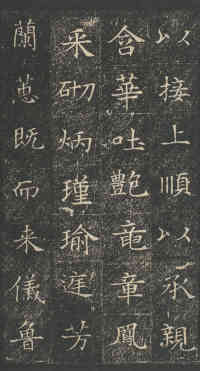 以接上順以承親
含華吐艷竜章鳳
采砌炳瑾瑜庭芳
蘭蕙既而来儀魯